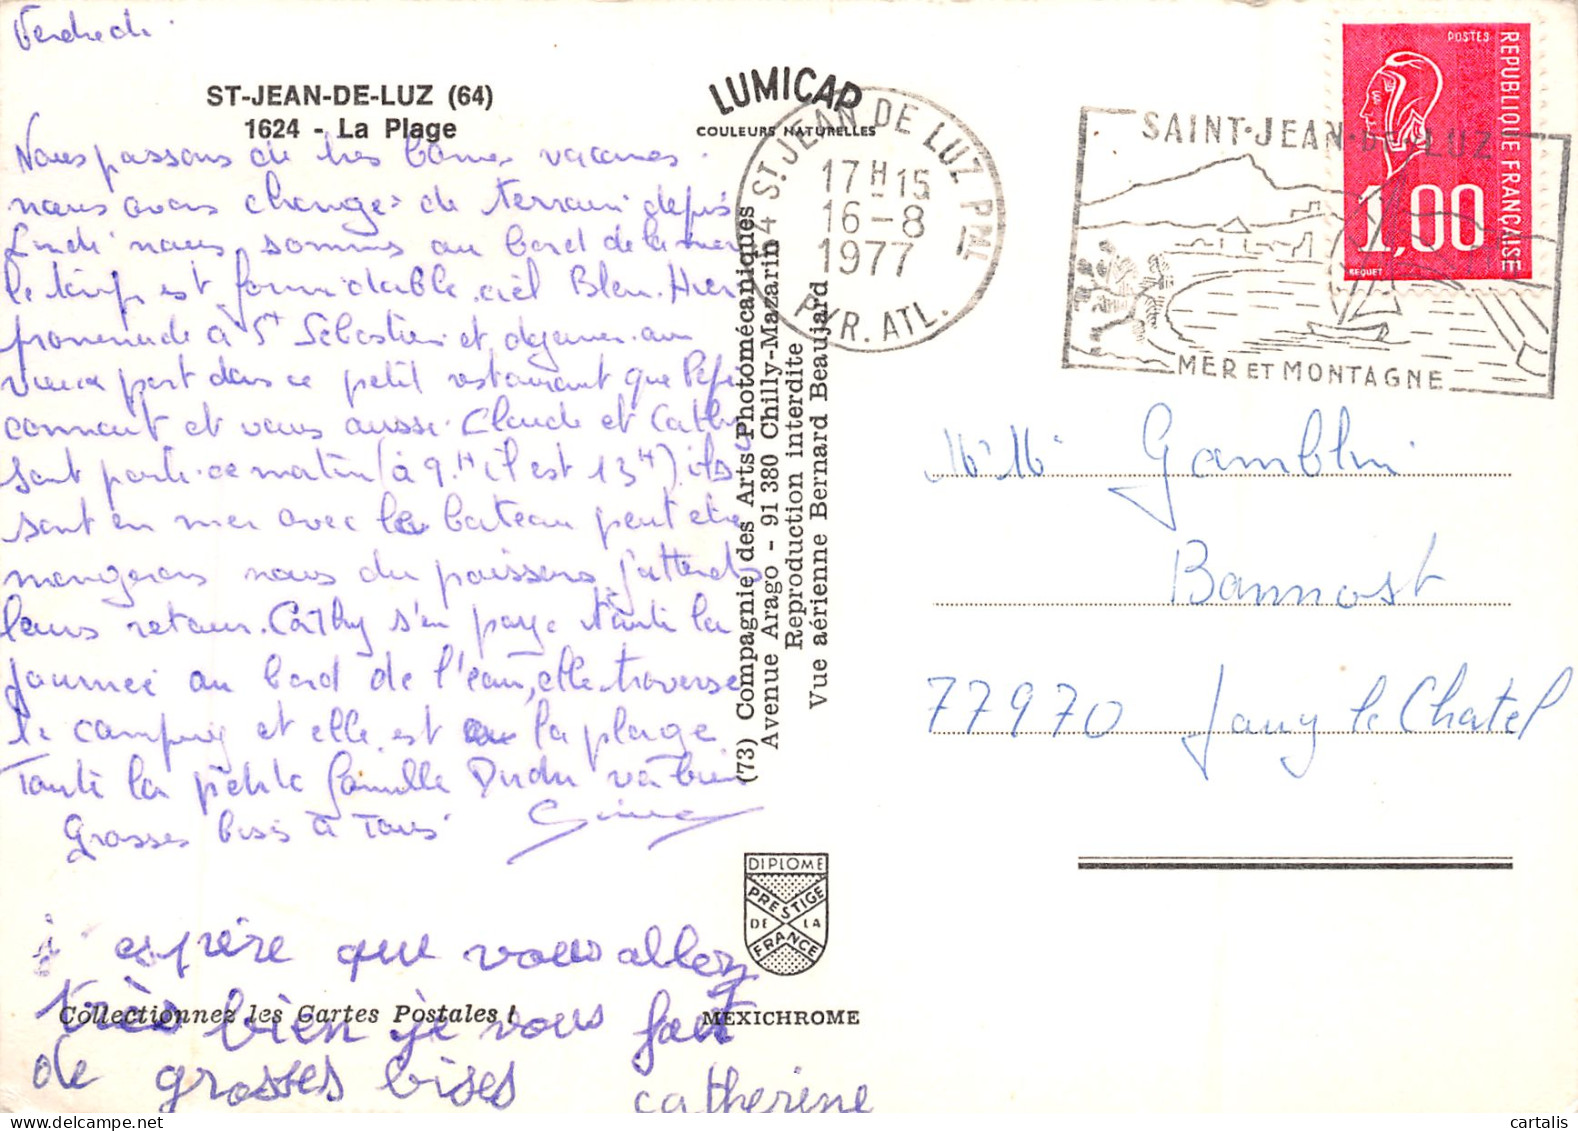 Vendredi
ST-JEAN-DE-LUZ (64)
1624 - La Plage
Nous passons de tres bonnes vacances.
nous avons changés de terrain depuis
Lundi nous sommes au bord de la mer
le temps est formidable, ciel Bleu. Hier
promenade à St Sébastien et dejeuner au
vieux port dans ce petit restaurant que Pépé
connait et vous aussi. Claude et Cathy
sont partis ce matin (à 9.H il est 13H) ils
sont en mer avec le bateau peut etre
mangerons nous du poissons j'attends
leurs retour. Cathy s'en paye toute la
journée au bord de l'eau, elle traverse
le camping et elle est la plage
Toute la petite famille Dudu va bien
Grosses bises à Tous
j espère que vous allez
très bien je vous fait
de grosses bises catherine
Collectionnez les Cartes Postales !
LUMICAP
COULEURS NATURELLES
(73) Compagnie des Arts Photomécaniques
Avenue Arago - 91 380 Chilly-Mazarin
Reproduction interdite
Vue aérienne Bernard Beaujard
DIPLOME
PRESTIGE
DE LA
FRANCE
MEXICHROME
64 ST.JEAN DE LUZ PPAL
17H15
16-8
1977
PYR. ATL.
SAINT-JEAN-DE-LUZ
MER ET MONTAGNE
POSTES
REPUBLIQUE FRANÇAISE
1,00
BEQUET
Mr Me Gamblin
Bannost
77970 Jouy le Chatel
cartalis
www.delcampe.net